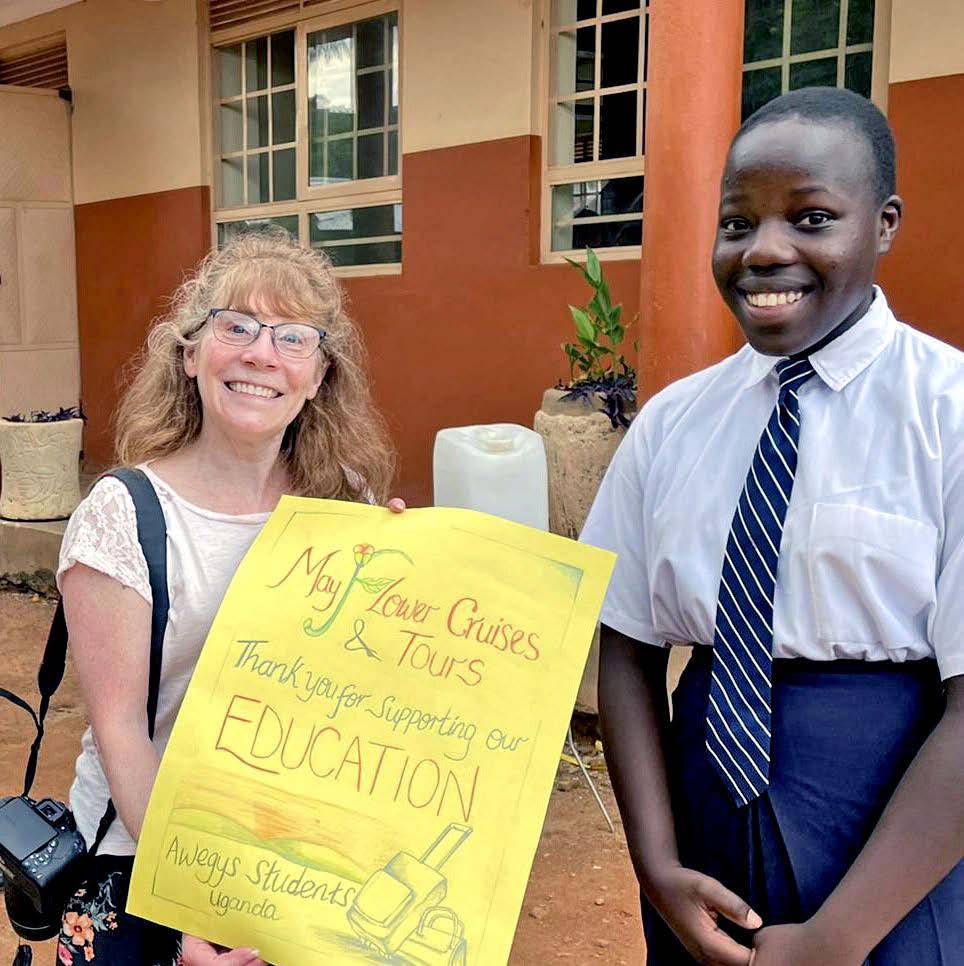 MayFlower Cruises
& Tours
Thank you for Supporting our
EDUCATION
Awegys Students
Uganda